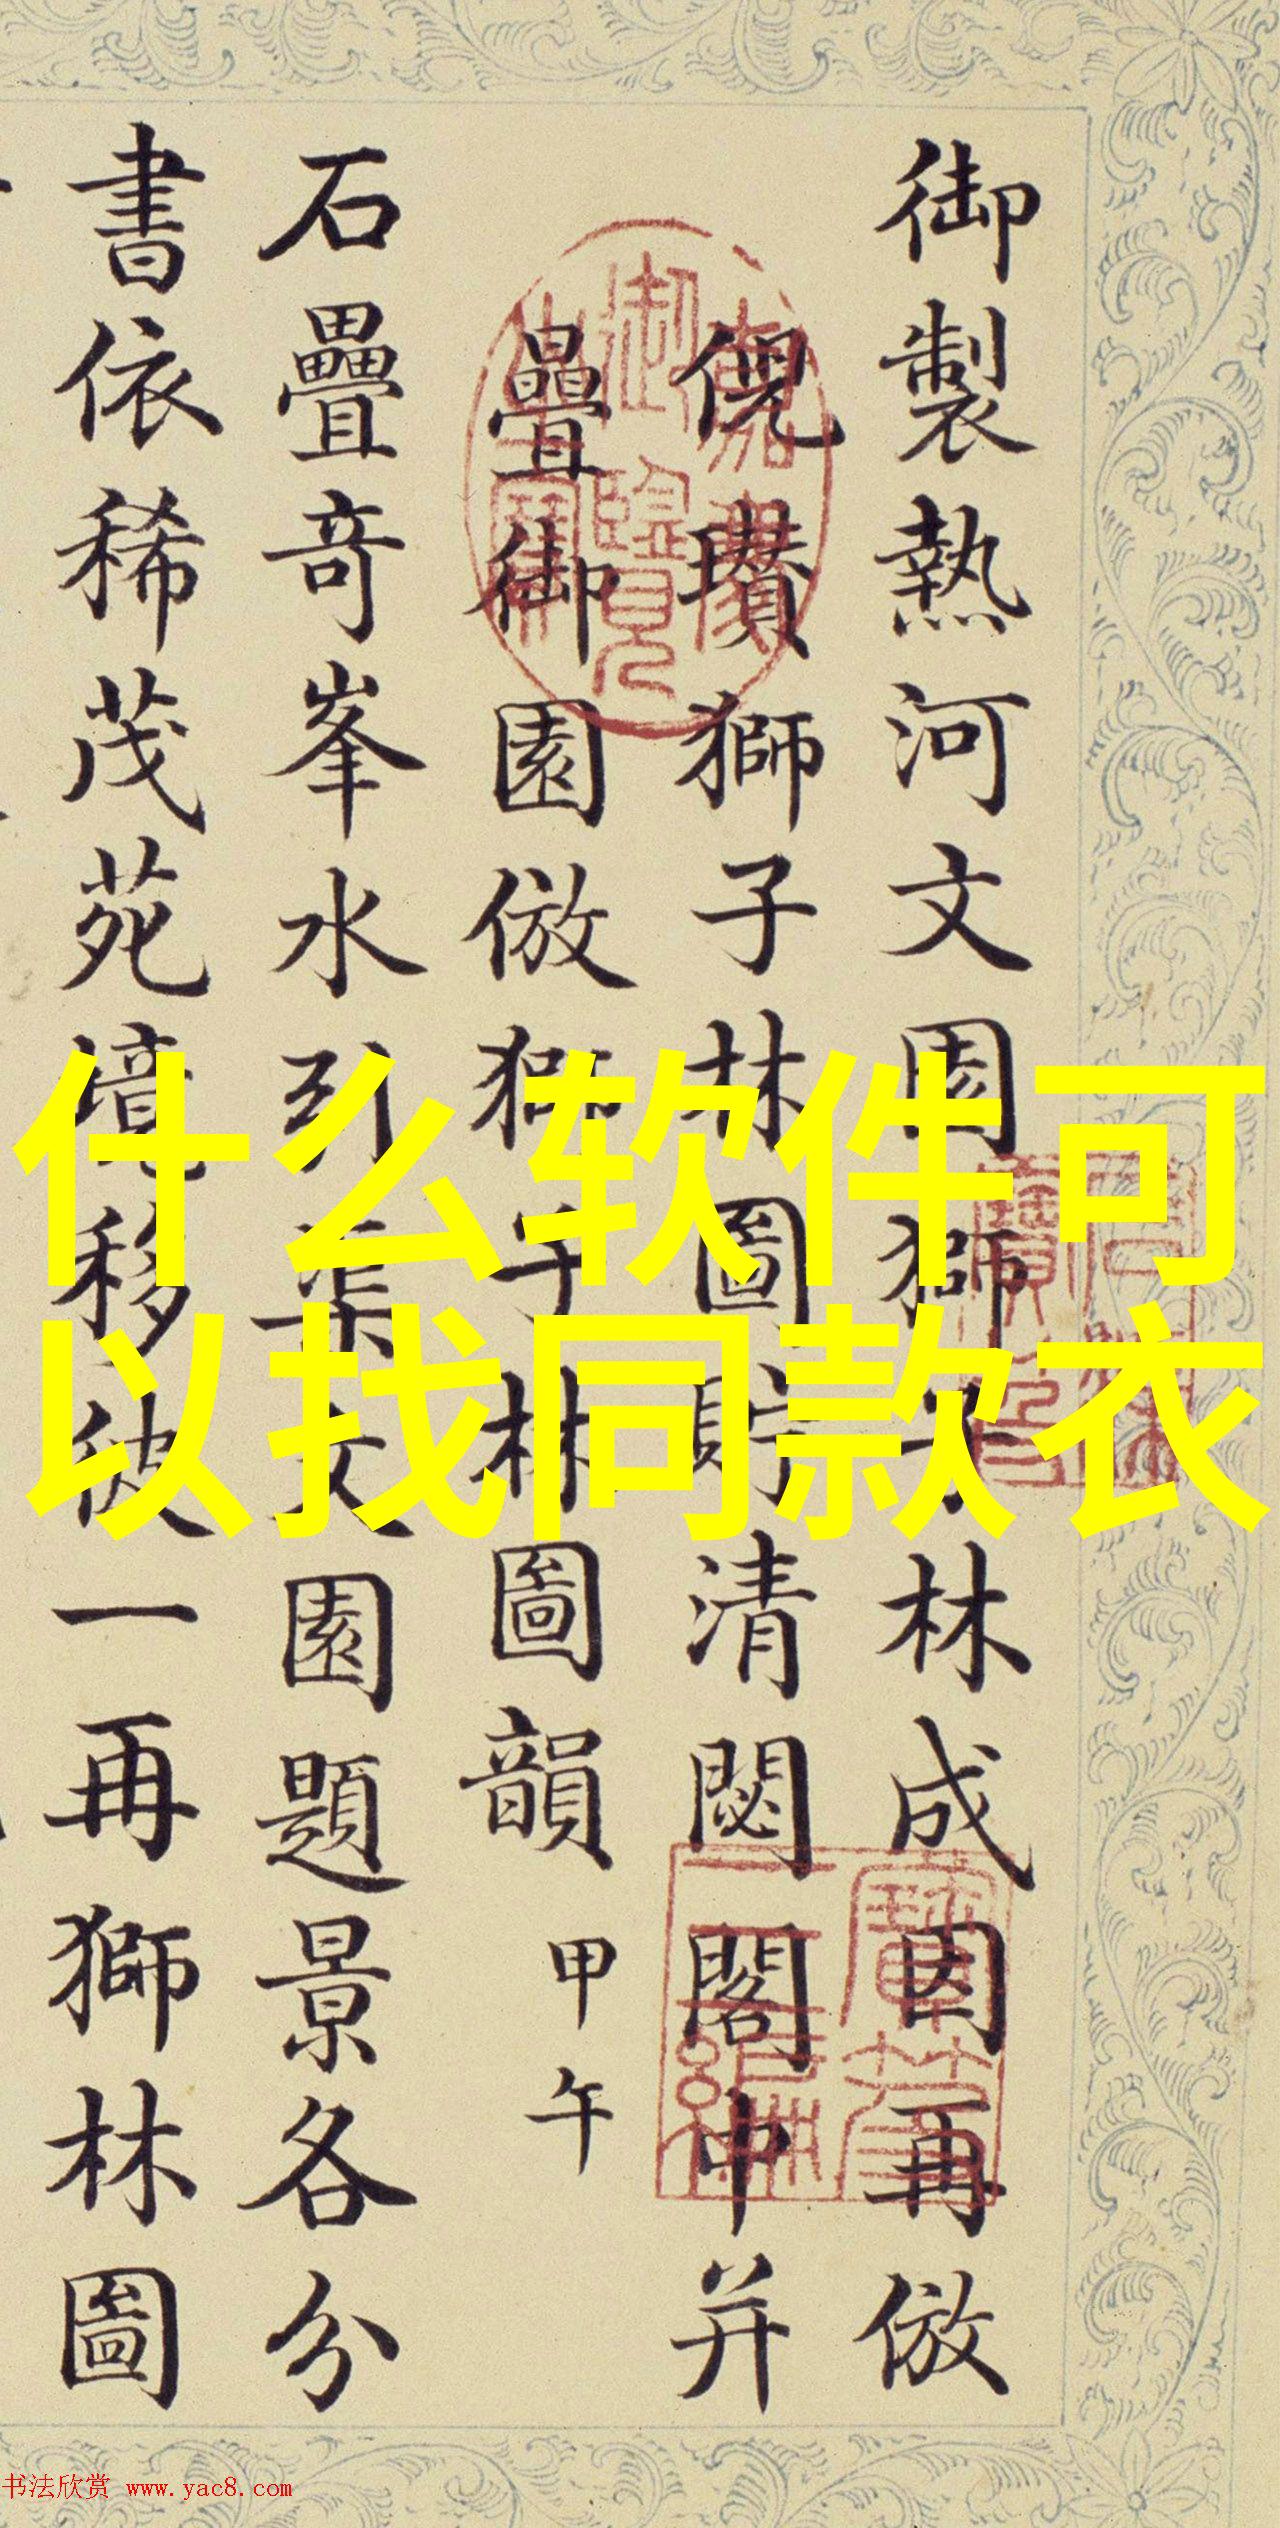 御製熱河文園獅子林成因再倣
倪瓚獅子林圖貯清閟閣中并
疊御園倣獅子林圖韻 甲午
石疊奇峯水引渠文園題景各分
書依稀茂苑境移彼一再獅林圖
什么软件可
以找同款衣
书法欣赏 www.yac8.com